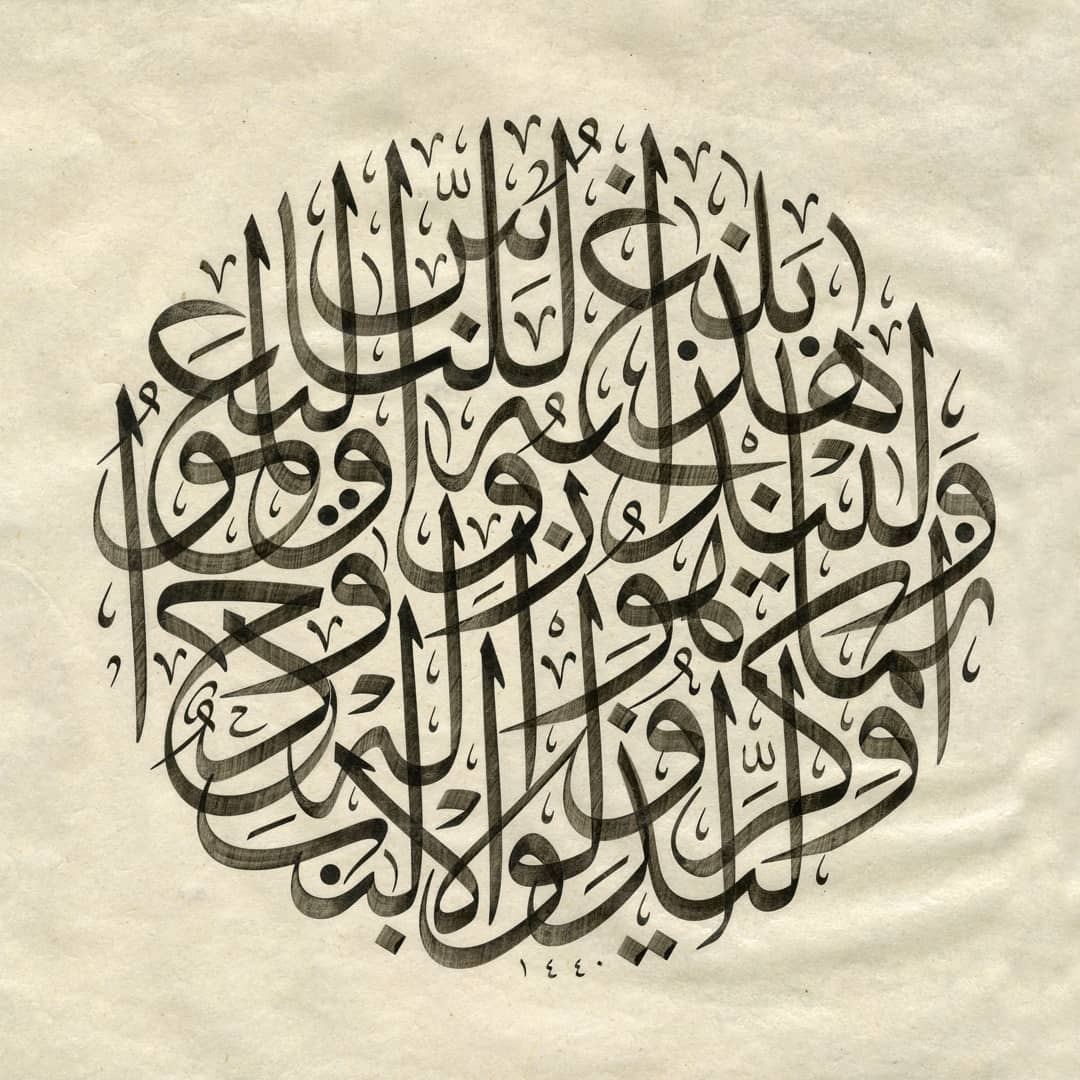 هَٰذَا بَلَاغٌ لِلنَّاسِ وَلِيُنْذَرُوا بِهِ وَلِيَعْلَمُوا أَنَّمَا هُوَ إِلَٰهٌ وَاحِدٌ وَلِيَذَّكَّرَ أُولُو الْأَلْبَابِ
١٤٤٠